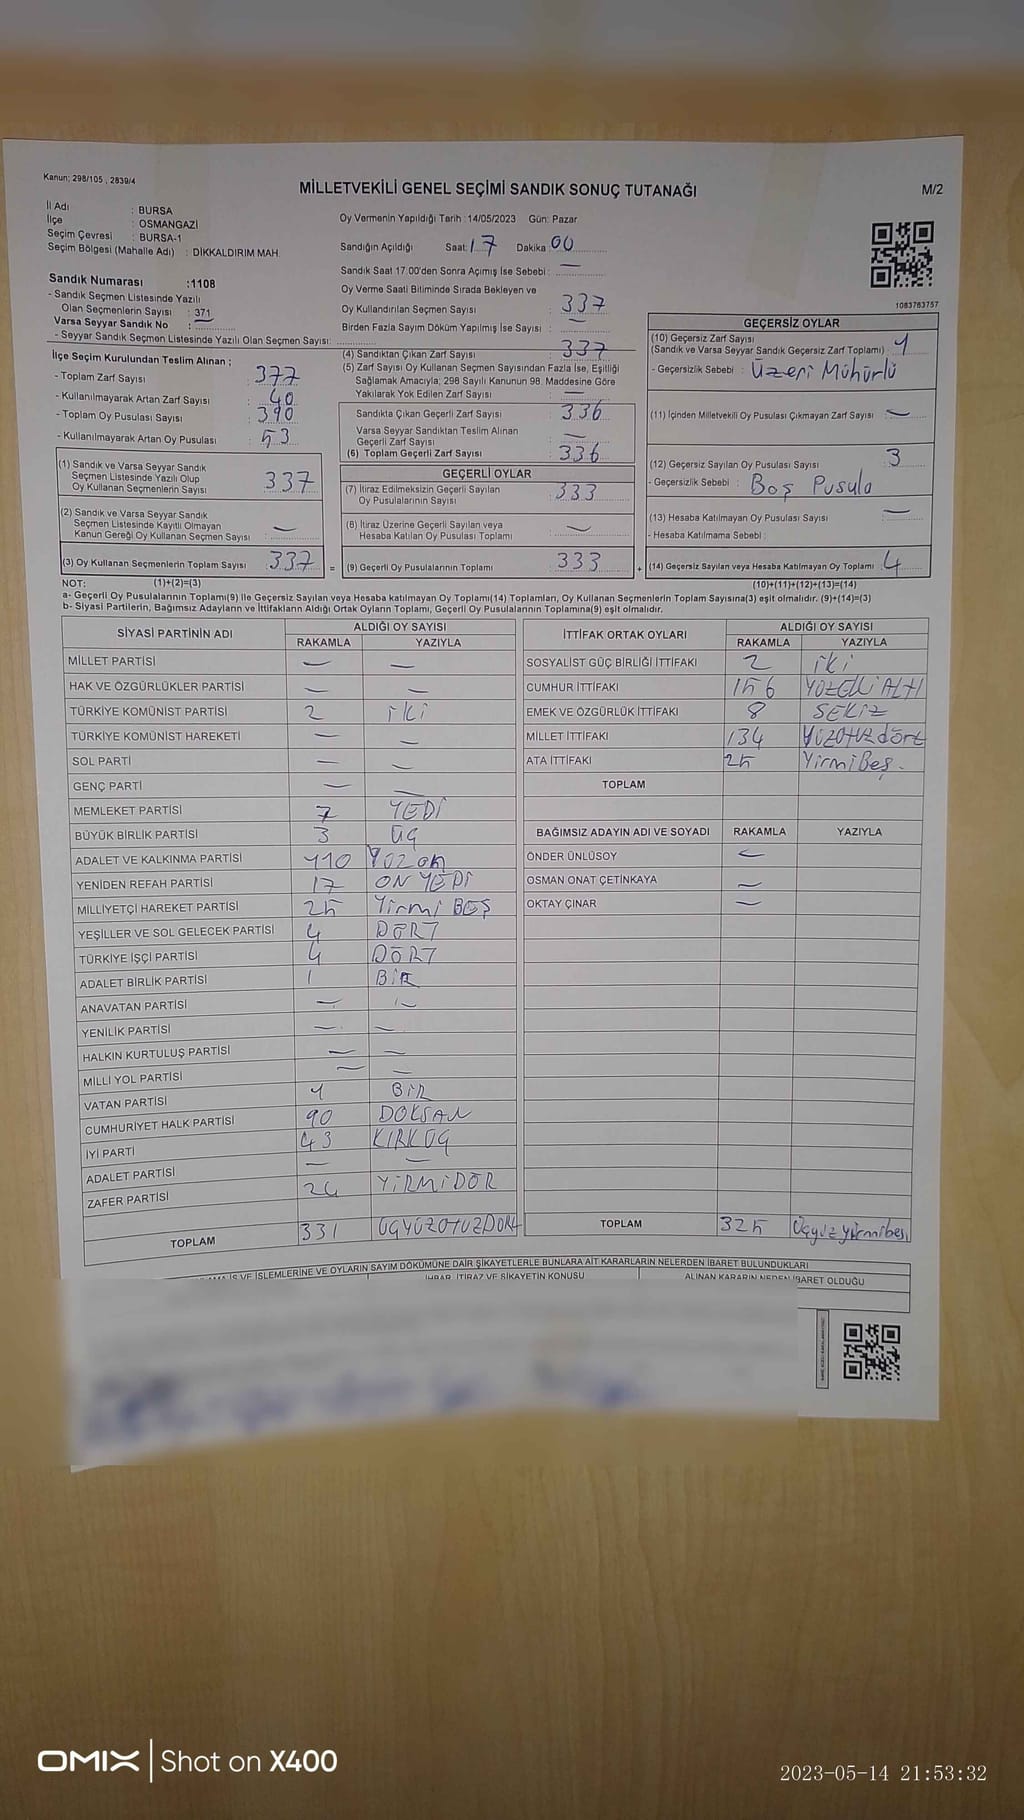 Kanun; 298/105 , 2839/4
MİLLETVEKİLİ GENEL SEÇİMİ SANDIK SONUÇ TUTANAĞI
M/2
İl Adı : BURSA
İlçe : OSMANGAZİ
Seçim Çevresi : BURSA-1
Seçim Bölgesi (Mahalle Adı) : DİKKALDIRIM MAH.
Oy Vermenin Yapıldığı Tarih :14/05/2023 Gün: Pazar
Sandığın Açıldığı Saat: 17 Dakika 00
Sandık Saat 17.00'den Sonra Açımış İse Sebebi : —
Oy Verme Saati Bitiminde Sırada Bekleyen ve
Oy Kullandırılan Seçmen Sayısı : 337
Birden Fazla Sayım Döküm Yapılmış İse Sayısı : —
1083763757
Sandık Numarası :1108
- Sandık Seçmen Listesinde Yazılı
Olan Seçmenlerin Sayısı : 371
Varsa Seyyar Sandık No :
- Seyyar Sandık Seçmen Listesinde Yazılı Olan Seçmen Sayısı:
İlçe Seçim Kurulundan Teslim Alınan ;
- Toplam Zarf Sayısı : 377
- Kullanılmayarak Artan Zarf Sayısı : 40
- Toplam Oy Pusulası Sayısı : 390
- Kullanılmayarak Artan Oy Pusulası : 53
(1) Sandık ve Varsa Seyyar Sandık
Seçmen Listesinde Yazılı Olup
Oy Kullanan Seçmenlerin Sayısı : 337
(2) Sandık ve Varsa Seyyar Sandık
Seçmen Listesinde Kayıtlı Olmayan
Kanun Gereği Oy Kullanan Seçmen Sayısı : —
(3) Oy Kullanan Seçmenlerin Toplam Sayısı : 337 =
(4) Sandıktan Çıkan Zarf Sayısı : 337
(5) Zarf Sayısı Oy Kullanan Seçmen Sayısından Fazla İse, Eşitliği
Sağlamak Amacıyla; 298 Sayılı Kanunun 98. Maddesine Göre
Yakılarak Yok Edilen Zarf Sayısı : —
Sandıkta Çıkan Geçerli Zarf Sayısı : 336
Varsa Seyyar Sandıktan Teslim Alınan
Geçerli Zarf Sayısı : —
(6) Toplam Geçerli Zarf Sayısı : 336
GEÇERLİ OYLAR
(7) İtiraz Edilmeksizin Geçerli Sayılan
Oy Pusulalarının Sayısı : 333
(8) İtiraz Üzerine Geçerli Sayılan veya
Hesaba Katılan Oy Pusulası Toplamı : —
(9) Geçerli Oy Pusulalarının Toplamı : 333 +
GEÇERSİZ OYLAR
(10) Geçersiz Zarf Sayısı
(Sandık ve Varsa Seyyar Sandık Geçersiz Zarf Toplamı) : 1
- Geçersizlik Sebebi : Üzeri Mühürlü
(11) İçinden Milletvekili Oy Pusulası Çıkmayan Zarf Sayısı : —
(12) Geçersiz Sayılan Oy Pusulası Sayısı : 3
- Geçersizlik Sebebi : Boş Pusula
(13) Hesaba Katılmayan Oy Pusulası Sayısı : —
- Hesaba Katılmama Sebebi :
(14) Geçersiz Sayılan veya Hesaba Katılmayan Oy Toplamı : 4
NOT: (1)+(2)=(3) (10)+(11)+(12)+(13)=(14)
a- Geçerli Oy Pusulalarının Toplamı(9) ile Geçersiz Sayılan veya Hesaba katılmayan Oy Toplamı(14) Toplamları, Oy Kullanan Seçmenlerin Toplam Sayısına(3) eşit olmalıdır. (9)+(14)=(3)
b- Siyasi Partilerin, Bağımsız Adayların ve İttifakların Aldığı Ortak Oyların Toplamı, Geçerli Oy Pusulalarının Toplamına(9) eşit olmalıdır.
SİYASİ PARTİNİN ADI ALDIĞI OY SAYISI
RAKAMLA YAZIYLA
MİLLET PARTİSİ — —
HAK VE ÖZGÜRLÜKLER PARTİSİ — —
TÜRKİYE KOMÜNİST PARTİSİ 2 iki
TÜRKİYE KOMÜNİST HAREKETİ — —
SOL PARTİ — —
GENÇ PARTİ — —
MEMLEKET PARTİSİ 7 YEDİ
BÜYÜK BİRLİK PARTİSİ 3 ÜÇ
ADALET VE KALKINMA PARTİSİ 110 Yüzon
YENİDEN REFAH PARTİSİ 17 ON YEDİ
MİLLİYETÇİ HAREKET PARTİSİ 25 Yirmi BEŞ
YEŞİLLER VE SOL GELECEK PARTİSİ 4 DÖRT
TÜRKİYE İŞÇİ PARTİSİ 4 DÖRT
ADALET BİRLİK PARTİSİ 1 BİR
ANAVATAN PARTİSİ — —
YENİLİK PARTİSİ — —
HALKIN KURTULUŞ PARTİSİ — —
MİLLİ YOL PARTİSİ — —
VATAN PARTİSİ 1 BİR
CUMHURİYET HALK PARTİSİ 90 DOKSAN
İYİ PARTİ 43 KIRKÜÇ
ADALET PARTİSİ — —
ZAFER PARTİSİ 24 YİRMİDÖR
TOPLAM 331 ÜÇYÜZOTUZDÖRT
İTTİFAK ORTAK OYLARI ALDIĞI OY SAYISI
RAKAMLA YAZIYLA
SOSYALİST GÜÇ BİRLİĞİ İTTİFAKI 2 iki
CUMHUR İTTİFAKI 156 YÜZELLİ ALTI
EMEK VE ÖZGÜRLÜK İTTİFAKI 8 SEKİZ
MİLLET İTTİFAKI 134 Yüzotuzdört
ATA İTTİFAKI 25 YirmiBeş.
TOPLAM
BAĞIMSIZ ADAYIN ADI VE SOYADI RAKAMLA YAZIYLA
ÖNDER ÜNLÜSOY —
OSMAN ONAT ÇETİNKAYA —
OKTAY ÇINAR —
TOPLAM 325 Üçyüzyirmibeş
İŞ VE İŞLEMLERİNE VE OYLARIN SAYIM DÖKÜMÜNE DAİR ŞİKAYETLERLE BUNLARA AİT KARARLARIN NELERDEN İBARET BULUNDUKLARI
İHBAR, İTİRAZ VE ŞİKAYETİN KONUSU ALINAN KARARIN NEDEN İBARET OLDUĞU
OMIX | Shot on X400
2023-05-14 21:53:32